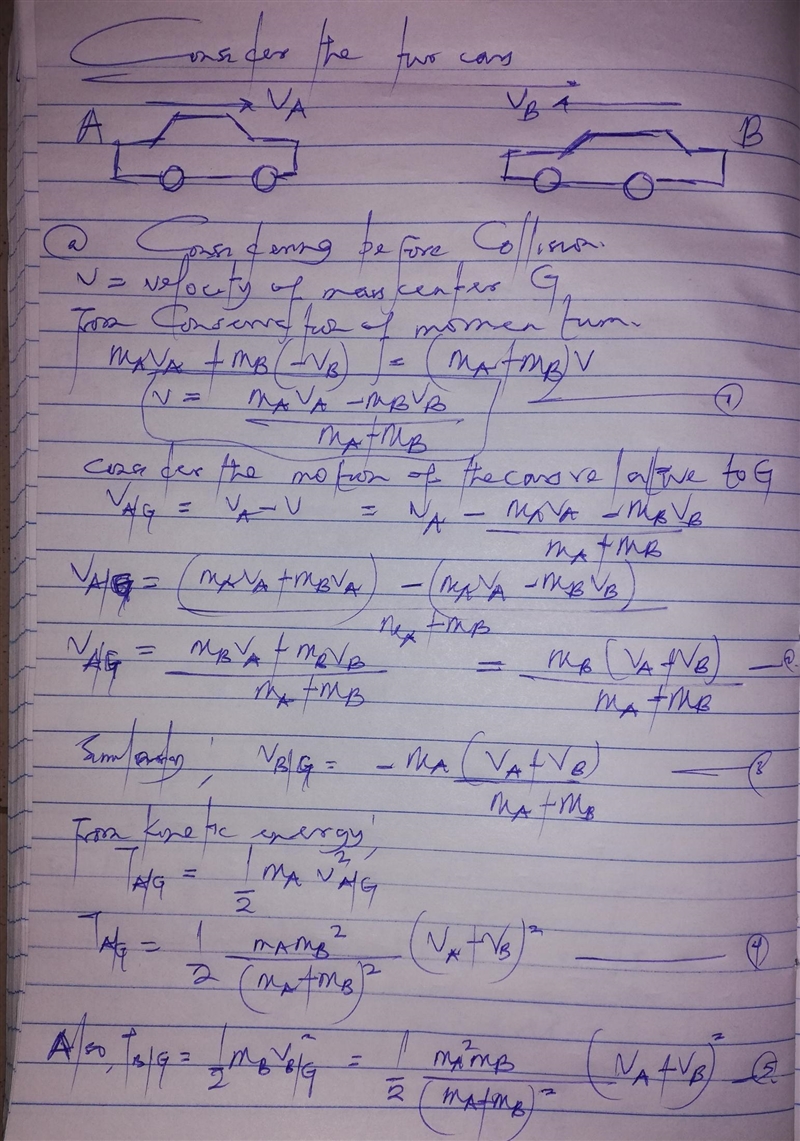 Consider the two cars
A V_A V_B B
(a) Considering before Collision.
V = velocity of mass center G
From Conservation of momentum.
m_A V_A + m_B (-V_B) = (m_A + m_B) V
V = (m_A V_A - m_B V_B) / (m_A + m_B) — (1)
Consider the motion of the cars relative to G
V_A/G = V_A - V = V_A - (m_A V_A - m_B V_B) / (m_A + m_B)
V_A/G = ((m_A V_A + m_B V_A) - (m_A V_A - m_B V_B)) / (m_A + m_B)
V_A/G = (m_B V_A + m_B V_B) / (m_A + m_B) = m_B (V_A + V_B) / (m_A + m_B) — (2)
Similarly; V_B/G = -m_A (V_A + V_B) / (m_A + m_B) — (3)
From kinetic energy;
T_A/G = 1/2 m_A V²_A/G
T_A/G = 1/2 m_A m_B² / (m_A + m_B)² (V_A + V_B)² — (4)
Also, T_B/G = 1/2 m_B V_B/G² = 1/2 m_A² m_B / (m_A + m_B)² (V_A + V_B)² — (5)